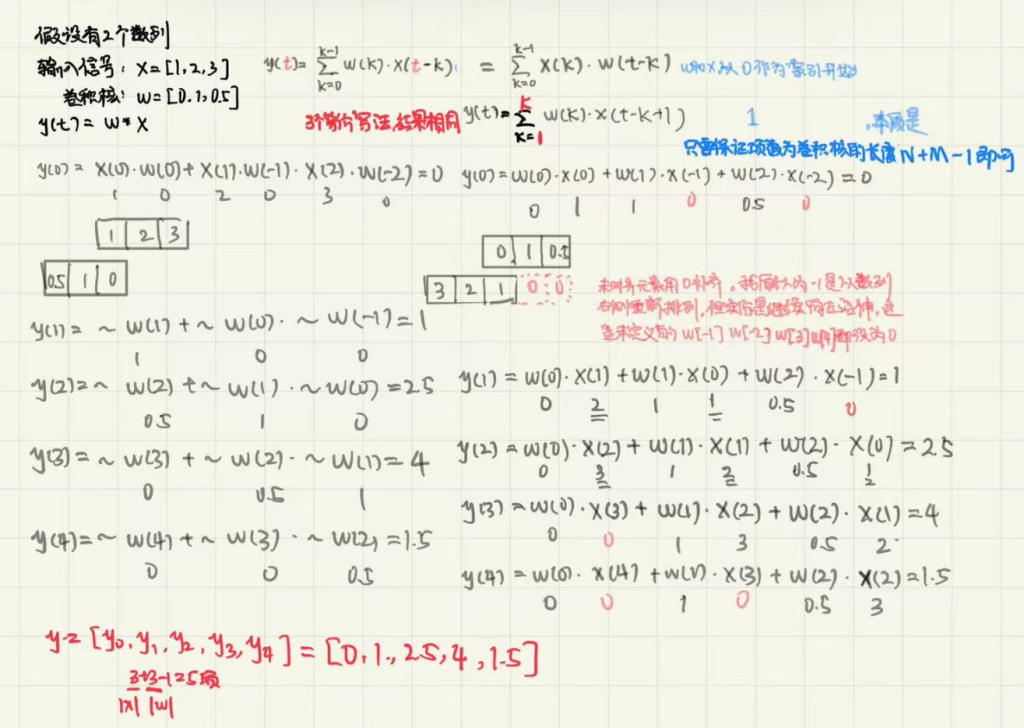 假设有2个数列
输入信号: X=[1,2,3]
卷积核: W=[0,1,0.5]
y(t)= W * X
y(t)= Σ_{k=0}^{k-1} W(k)·X(t-k) = Σ_{k=0}^{k-1} X(k)·W(t-k) W和X从0作为索引开始
3个等价写法,结果相同 y(t)= Σ_{k=1}^{k} W(k)·X(t-k+1) 1 ,本质是
只需保证项数为卷积核的长度N+M-1即可
y(0)= X(0)·W(0)+X(1)·W(-1)·X(2)·W(-2)=0
1 0 2 0 3 0
1 2 3
0.5 1 0
y(1)= ~ W(1)+~ W(0)·~ W(-1)=1
1 0 0
y(2)=~ W(2)+~ W(1)·~ W(0)=2.5
0.5 1 0
y(3)=~ W(3)+~ W(2)·~ W(1)=4
0 0.5 1
y(4)=~ W(4)+~ W(3)·~ W(2)=1.5
0 0 0.5
y(0)=W(0)·X(0)+W(1)·X(-1)+W(2)·X(-2)=0
0 1 1 0 0.5 0
0 1 0.5
3 2 1 0 0
未对齐元素用0补齐,我原以为-1是从数列
右侧重新排列,但实际是继续向左延伸,这
些未定义的W[-1] W[-2] W[3] W[4]都设为0
y(1)=W(0)·X(1)+W(1)·X(0)+W(2)·X(-1)=1
0 2 1 1 0.5 0
y(2)=W(0)·X(2)+W(1)·X(1)+W(2)·X(0)=2.5
0 3 1 2 0.5 1
y(3)=W(0)·X(3)+W(1)·X(2)+W(2)·X(1)=4
0 0 1 3 0.5 2
y(4)=W(0)·X(4)+W(1)·X(3)+W(2)·X(2)=1.5
0 0 1 0 0.5 3
y=[y0,y1,y2,y3,y4]=[0,1,2.5,4,1.5]
3+3-1=5项
|x| |w|